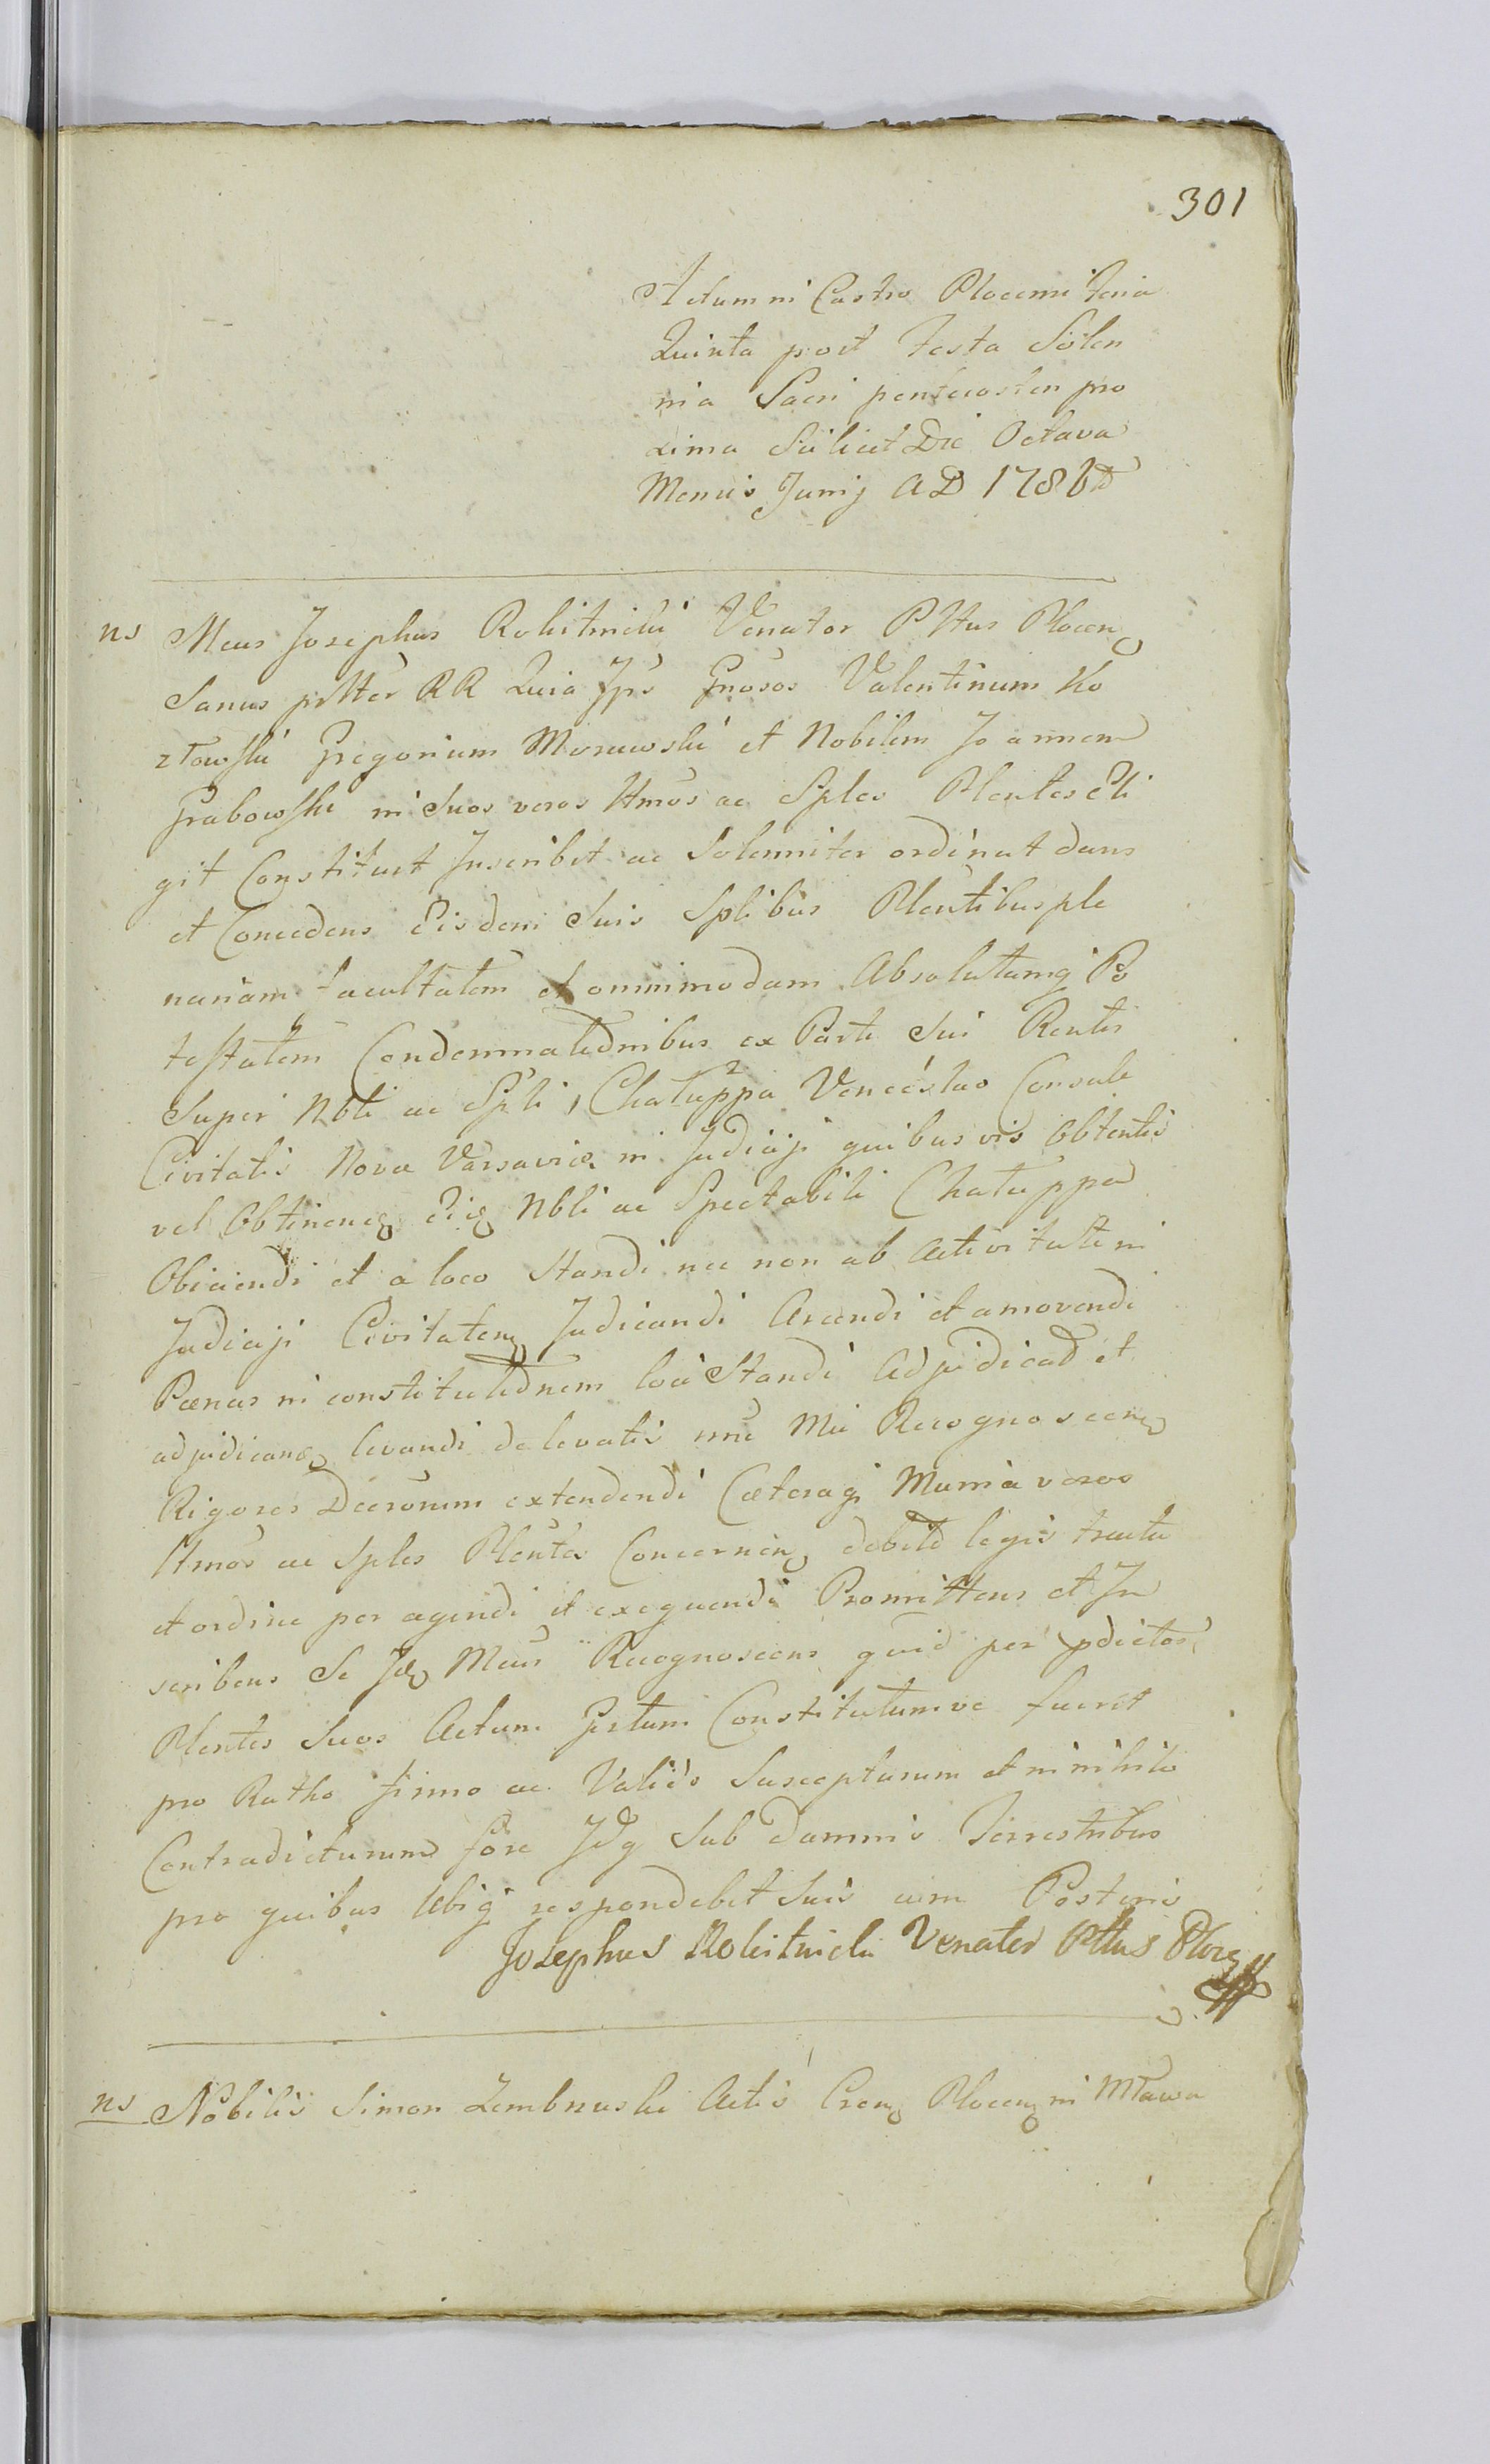 301
Actum in Castro Plocensi Feria
Quinta post Festa Solen
nia Sacri pentecosten pro
xima Scilicet Die Octava
Mensis Junij AD 1786tô
ns Mcus Josephus Rokitnicki Venator Pttus Plocen
Sanus pttter RR Quia Jps Gnosos Valentinum Ko
złowski Gregorium Morawski et Nobilem Joannem
Grabowski in Suos veros Ittmos ac Sples Plentes Eli
git Constituit Inscribit ac Solenniter ordinat dans
et Concedens Eisdem Suis Splibus Plentibus ple
nariam facultatem et omnimodam Absolutamq Po
testatem Condemnationibus ex Parte Sui Rentis
Super Nbli ac Spli, Chatuppa Venceslao Consule
Civitatis Nova Varsavia in Judicijs quibusvis Obtentis
vel Obtinen Eiq Nbli ac Spectabili Chatuppa
Obiiciendi et a loco Standi nec non ab Activitate in
Judicijs Civitaten Judicandi Arcendi et amovendi
Pænas in constitutionem loci Standi Adjudicad et
adjudicand levandi de levatis nne Mci Recognoscen
Rigores Decrorum extendendi Cæteraq Munia veros
Ittmos ac Sples Plentes Concernen debito legis tractu
et ordine peragendi et exequendi Promittens et In
scribens Se Jd Mcus Recognoscens quid per pdictos
Plentes Suos Actum Gestum Constitutumve fuerit
pro Ratho firmo ac Valido Suscepturum et in nihilo
Contradicturum fore Jdq Sub damnis Terrestribus
pro quibus Ubiq respondebit Suis cum Posteris
Josephus Rokitnicki Venator Pttus Ploc
ns Nobilis Simon Zembrzuski Actis Cren Plocen in Mława